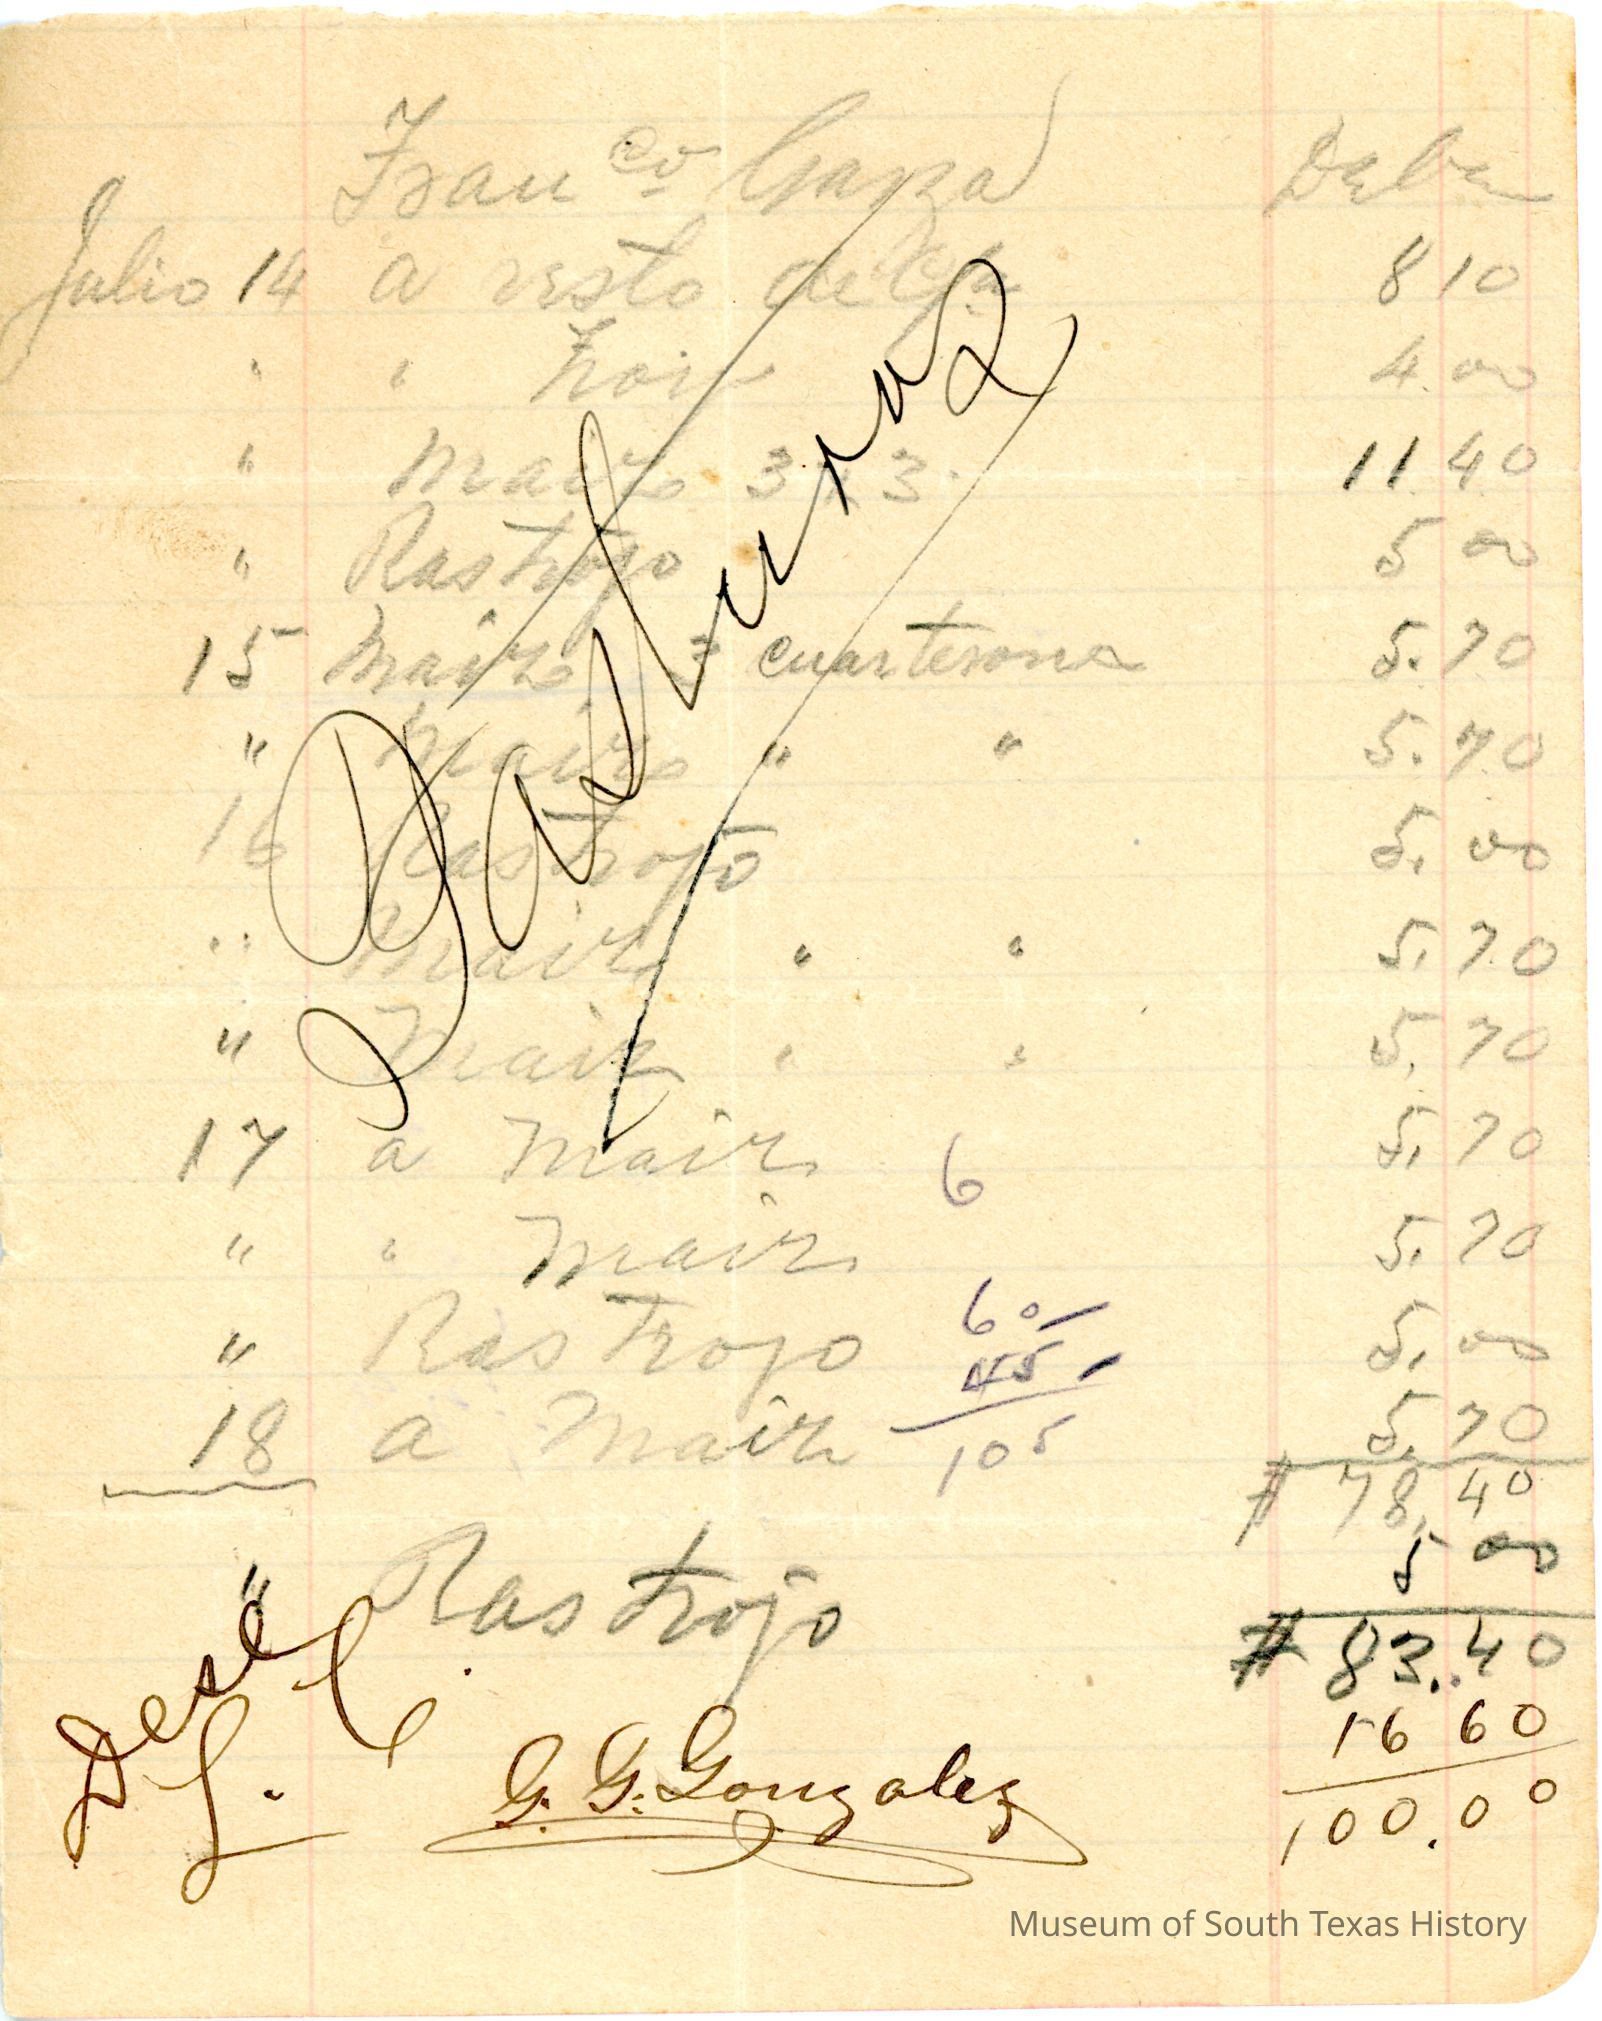 Franco Garza Debe
Julio 14 a resto de Cta 8 10
" " 4.00
" Maiz 3 x 3. 11.40
" Rastrojo 5 00
15 Maiz 3 cuarterona 5.70
" Maiz " " 5.70
16 Rastrojo 5.00
" Maiz " " 5.70
" Maiz " " 5.70
17 a Maiz 6 5.70
" " Maiz 5.70
" Rastrojo 60 5.00
45
18 a Maiz 105 5.70
$ 78.40
" Rastrojo 5 00
$ 83.40
16 60
100.00
Dese
L. C.
G. G. Gonzalez
Museum of South Texas History